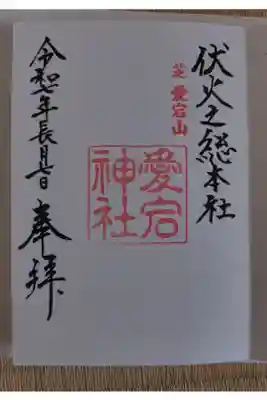 伏火之総本社
芝 愛宕山
愛宕
神社
奉拝
令和七年長月七日